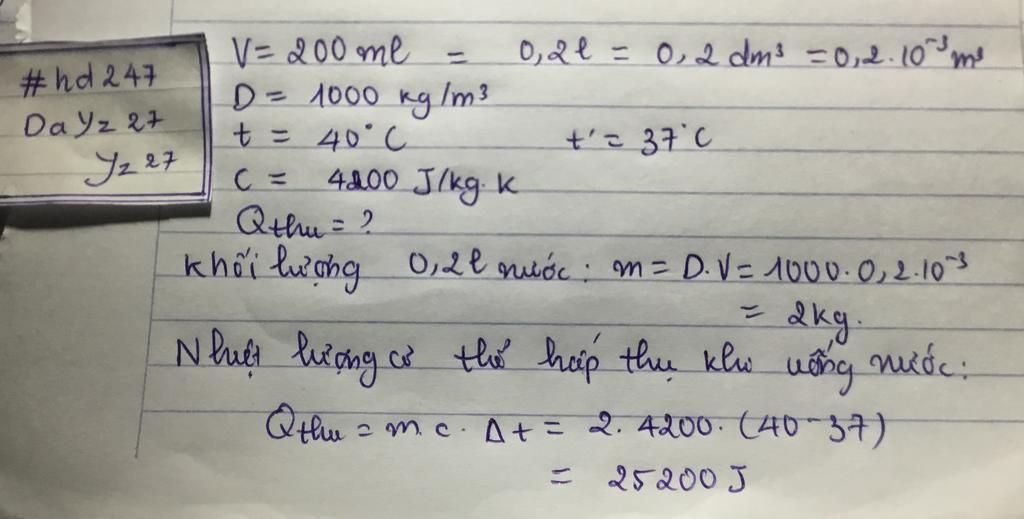 #hd247
DaYz27
Yz27
V = 200 ml = 0,2l = 0,2 dm³ = 0,2.10⁻³ m³
D = 1000 kg/m³
t = 40°C t' = 37°C
C = 4200 J/kg.K
Qthu = ?
Khối lượng 0,2l nước: m = D.V = 1000.0,2.10⁻³
= 2kg.
Nhiệt lượng cơ thể hấp thụ khi uống nước:
Qthu = m.c.Δt = 2.4200.(40-37)
= 25200 J